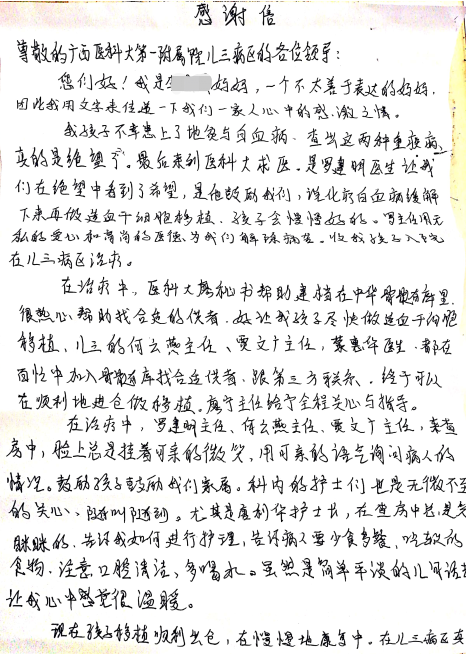 感谢信
尊敬的广西医科大第一附属院儿三病区的各位领导：
您们好！我是妈妈，一个不太善于表达的妈妈，
因此我用文字来传递一下我们一家人心中的感激之情。
我孩子不幸患上了地贫与白血病，查出这两种重疾病，
真的是绝望了。最后来到医科大求医。是罗建明医生让我
们在绝望中看到了希望，是他鼓励我们，说化疗白血病缓解
下来再做造血干细胞移植，孩子会慢慢好的。罗主任用无
私的爱心和高尚的医德为我们解除病苦。收我孩子入院
在儿三病区治疗。
在治疗中，医科大秘书帮助建档在中华骨髓库里，
很热心帮助找合适的供者，好让我孩子尽快做造血干细胞
移植、儿三的何云燕主任、贾文广主任，叶惠华医生，都在
百忙中加入骨髓库找合适供者，跟第三方联系，终于可以
在顺利地进仓做移植。廖宁主任给予全程关心与指导。
在治疗中，罗建明主任、何云燕主任、贾文广主任，来查
房中，脸上总是挂着可亲的微笑，用可亲的语气询问病人的
情况。鼓励孩子鼓励我们家属。科内的护士们也是无微不至
的关心、随叫随到。尤其是唐利华护士长，在查房中总是笑
眯眯的，告诉我如何进行护理，告诉病人要少食多餐，吃软的
食物，注意口腔清洁，多喝水。虽然是简单平淡的几句话
让我心中感觉很温暖。
现在孩子移植顺利出仓，在慢慢地康复中。在儿三病区